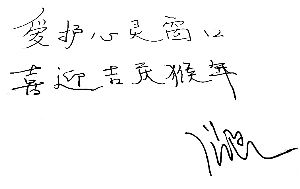 爱护心灵窗口
喜迎吉庆猴年